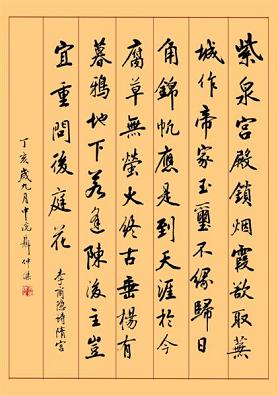 紫泉宫殿鎖烟霞欲取蕪
城作帝家玉璽不缘歸日
角錦帆應是到天涯於今
腐草無螢火終古垂楊有
暮鴉地下若逢陳後主豈
宜重問後庭花 李商隐詩隋宫
丁亥歲九月中浣